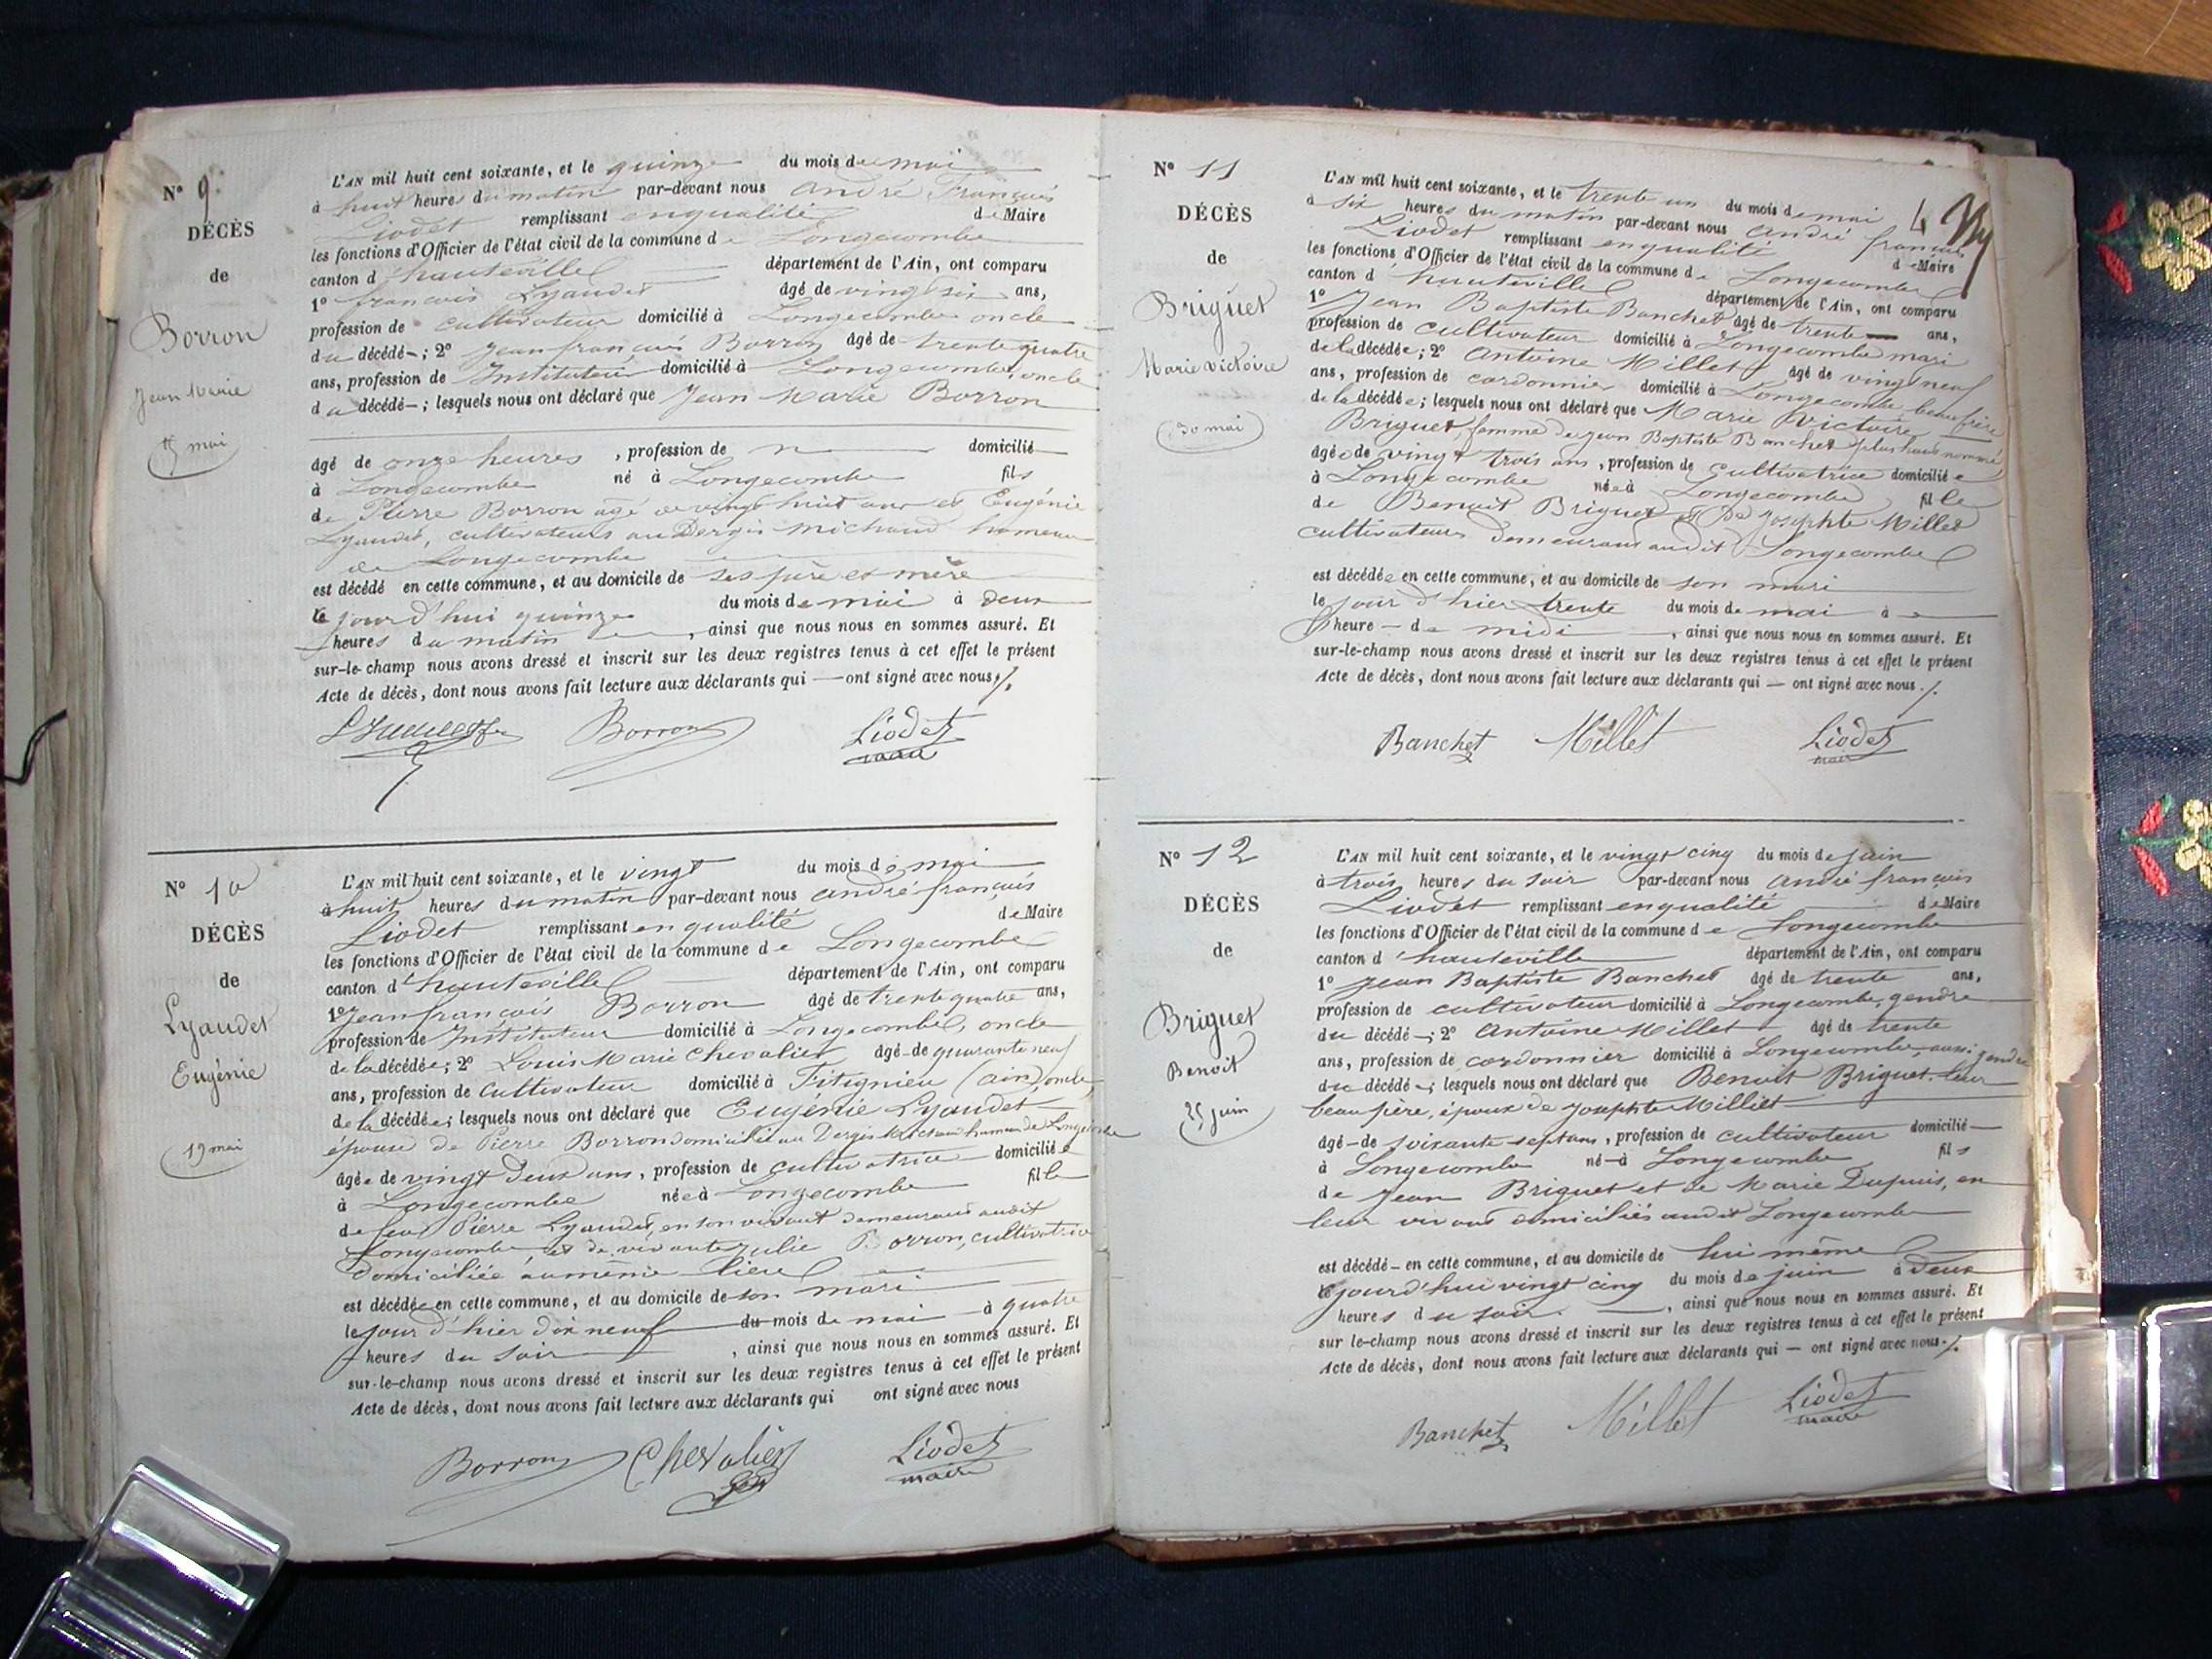 N° 9
DÉCÈS
de
Borron
Jean Marie
15 mai
L'AN mil huit cent soixante, et le quinze du mois de mai
à huit heures du matin par-devant nous André François
Liodet remplissant en qualité de Maire
les fonctions d'Officier de l'état civil de la commune de Longecombe
canton d'hauteville département de l'Ain, ont comparu
1° françois Lyaudet âgé de vingt six ans,
profession de cultivateur domicilié à Longecombe oncle
du décédé ; 2° Jean françois Borron âgé de trente quatre
ans, profession de Instituteur domicilié à Longecombe, oncle
du décédé ; lesquels nous ont déclaré que Jean Marie Borron
âgé de onze heures, profession de domicilié
à Longecombe né à Longecombe fils
de Pierre Borron âgé de vingt huit ans et Eugénie
Lyaudet, cultivateurs au Dergis Michaud hameau
de Longecombe
est décédé en cette commune, et au domicile de ses père et mère
le jourd'hui quinze du mois de mai à deux
heures du matin, ainsi que nous nous en sommes assuré. Et
sur-le-champ nous avons dressé et inscrit sur les deux registres tenus à cet effet le présent
Acte de décès, dont nous avons fait lecture aux déclarants qui — ont signé avec nous ./.
Borron Liodet
maire
N° 10
DÉCÈS
de
Lyaudet
Eugénie
19 mai
L'AN mil huit cent soixante, et le vingt du mois de mai
à huit heures du matin par-devant nous andré françois
Liodet remplissant en qualité de Maire
les fonctions d'Officier de l'état civil de la commune de Longecombe
canton d'hauteville département de l'Ain, ont comparu
1° Jean françois Borron âgé de trente quatre ans,
profession de Instituteur domicilié à Longecombe, oncle
de la décédée ; 2° Louis Marie Chevalier âgé de quarante neuf
ans, profession de cultivateur domicilié à Fitignieu (ain) oncle
de la décédée ; lesquels nous ont déclaré que Eugénie Lyaudet
épouse de Pierre Borron domiciliée au Dergis Michaud hameau de Longecombe
âgée de vingt deux ans, profession de cultivatrice domiciliée
à Longecombe née à Longecombe fille
de feu Pierre Lyaudet, en son vivant demeurant audit
Longecombe et de vivante Julie Borron, cultivatrice
domiciliée au même lieu
est décédée en cette commune, et au domicile de son mari
le jour d'hier dix neuf du mois de mai à quatre
heures du soir, ainsi que nous nous en sommes assuré. Et
sur-le-champ nous avons dressé et inscrit sur les deux registres tenus à cet effet le présent
Acte de décès, dont nous avons fait lecture aux déclarants qui ont signé avec nous
Borron Chevalier Liodet
maire
N° 11
DÉCÈS
de
Briguet
Marie victoire
30 mai
4
L'AN mil huit cent soixante, et le trente un du mois de mai
à six heures du matin par-devant nous andré françois
Liodet remplissant en qualité de Maire
les fonctions d'Officier de l'état civil de la commune de Longecombe
canton d'hauteville département de l'Ain, ont comparu
1° Jean Baptiste Banchet âgé de trente ans,
profession de cultivateur domicilié à Longecombe mari
de la décédée ; 2° Antoine Millet âgé de vingt neuf
ans, profession de cordonnier domicilié à Longecombe beau frère
de la décédée ; lesquels nous ont déclaré que Marie Victoire
Briguet, femme de Jean Baptiste Banchet plus haut nommé,
âgée de vingt trois ans, profession de cultivatrice domiciliée
à Longecombe née à Longecombe fille
de Benoit Briguet et de Josephte Millet
cultivateurs demeurant audit Longecombe
est décédée en cette commune, et au domicile de son mari
le jour d'hier trente du mois de mai à
heure — de midi, ainsi que nous nous en sommes assuré. Et
sur-le-champ nous avons dressé et inscrit sur les deux registres tenus à cet effet le présent
Acte de décès, dont nous avons fait lecture aux déclarants qui — ont signé avec nous ./.
Banchet Millet Liodet
maire
N° 12
DÉCÈS
de
Briguet
Benoit
25 juin
L'AN mil huit cent soixante, et le vingt cinq du mois de juin
à trois heures du soir par-devant nous André françois
Liodet remplissant en qualité de Maire
les fonctions d'Officier de l'état civil de la commune de Longecombe
canton d'hauteville département de l'Ain, ont comparu
1° Jean Baptiste Banchet âgé de trente ans,
profession de cultivateur domicilié à Longecombe, gendre
du décédé ; 2° Antoine Millet âgé de trente
ans, profession de cordonnier domicilié à Longecombe, aussi gendre
du décédé ; lesquels nous ont déclaré que Benoit Briguet leur
beau père, époux de Josephte Milliet
âgé de soixante sept ans, profession de cultivateur domicilié
à Longecombe né à Longecombe fils
de Jean Briguet et de Marie Dupuis, en
leur vivant domiciliés audit Longecombe
est décédé en cette commune, et au domicile de lui même
le jourd'hui vingt cinq du mois de juin à deux
heures du soir, ainsi que nous nous en sommes assuré. Et
sur le-champ nous avons dressé et inscrit sur les deux registres tenus à cet effet le présent
Acte de décès, dont nous avons fait lecture aux déclarants qui — ont signé avec nous ./.
Banchet Millet Liodet
maire